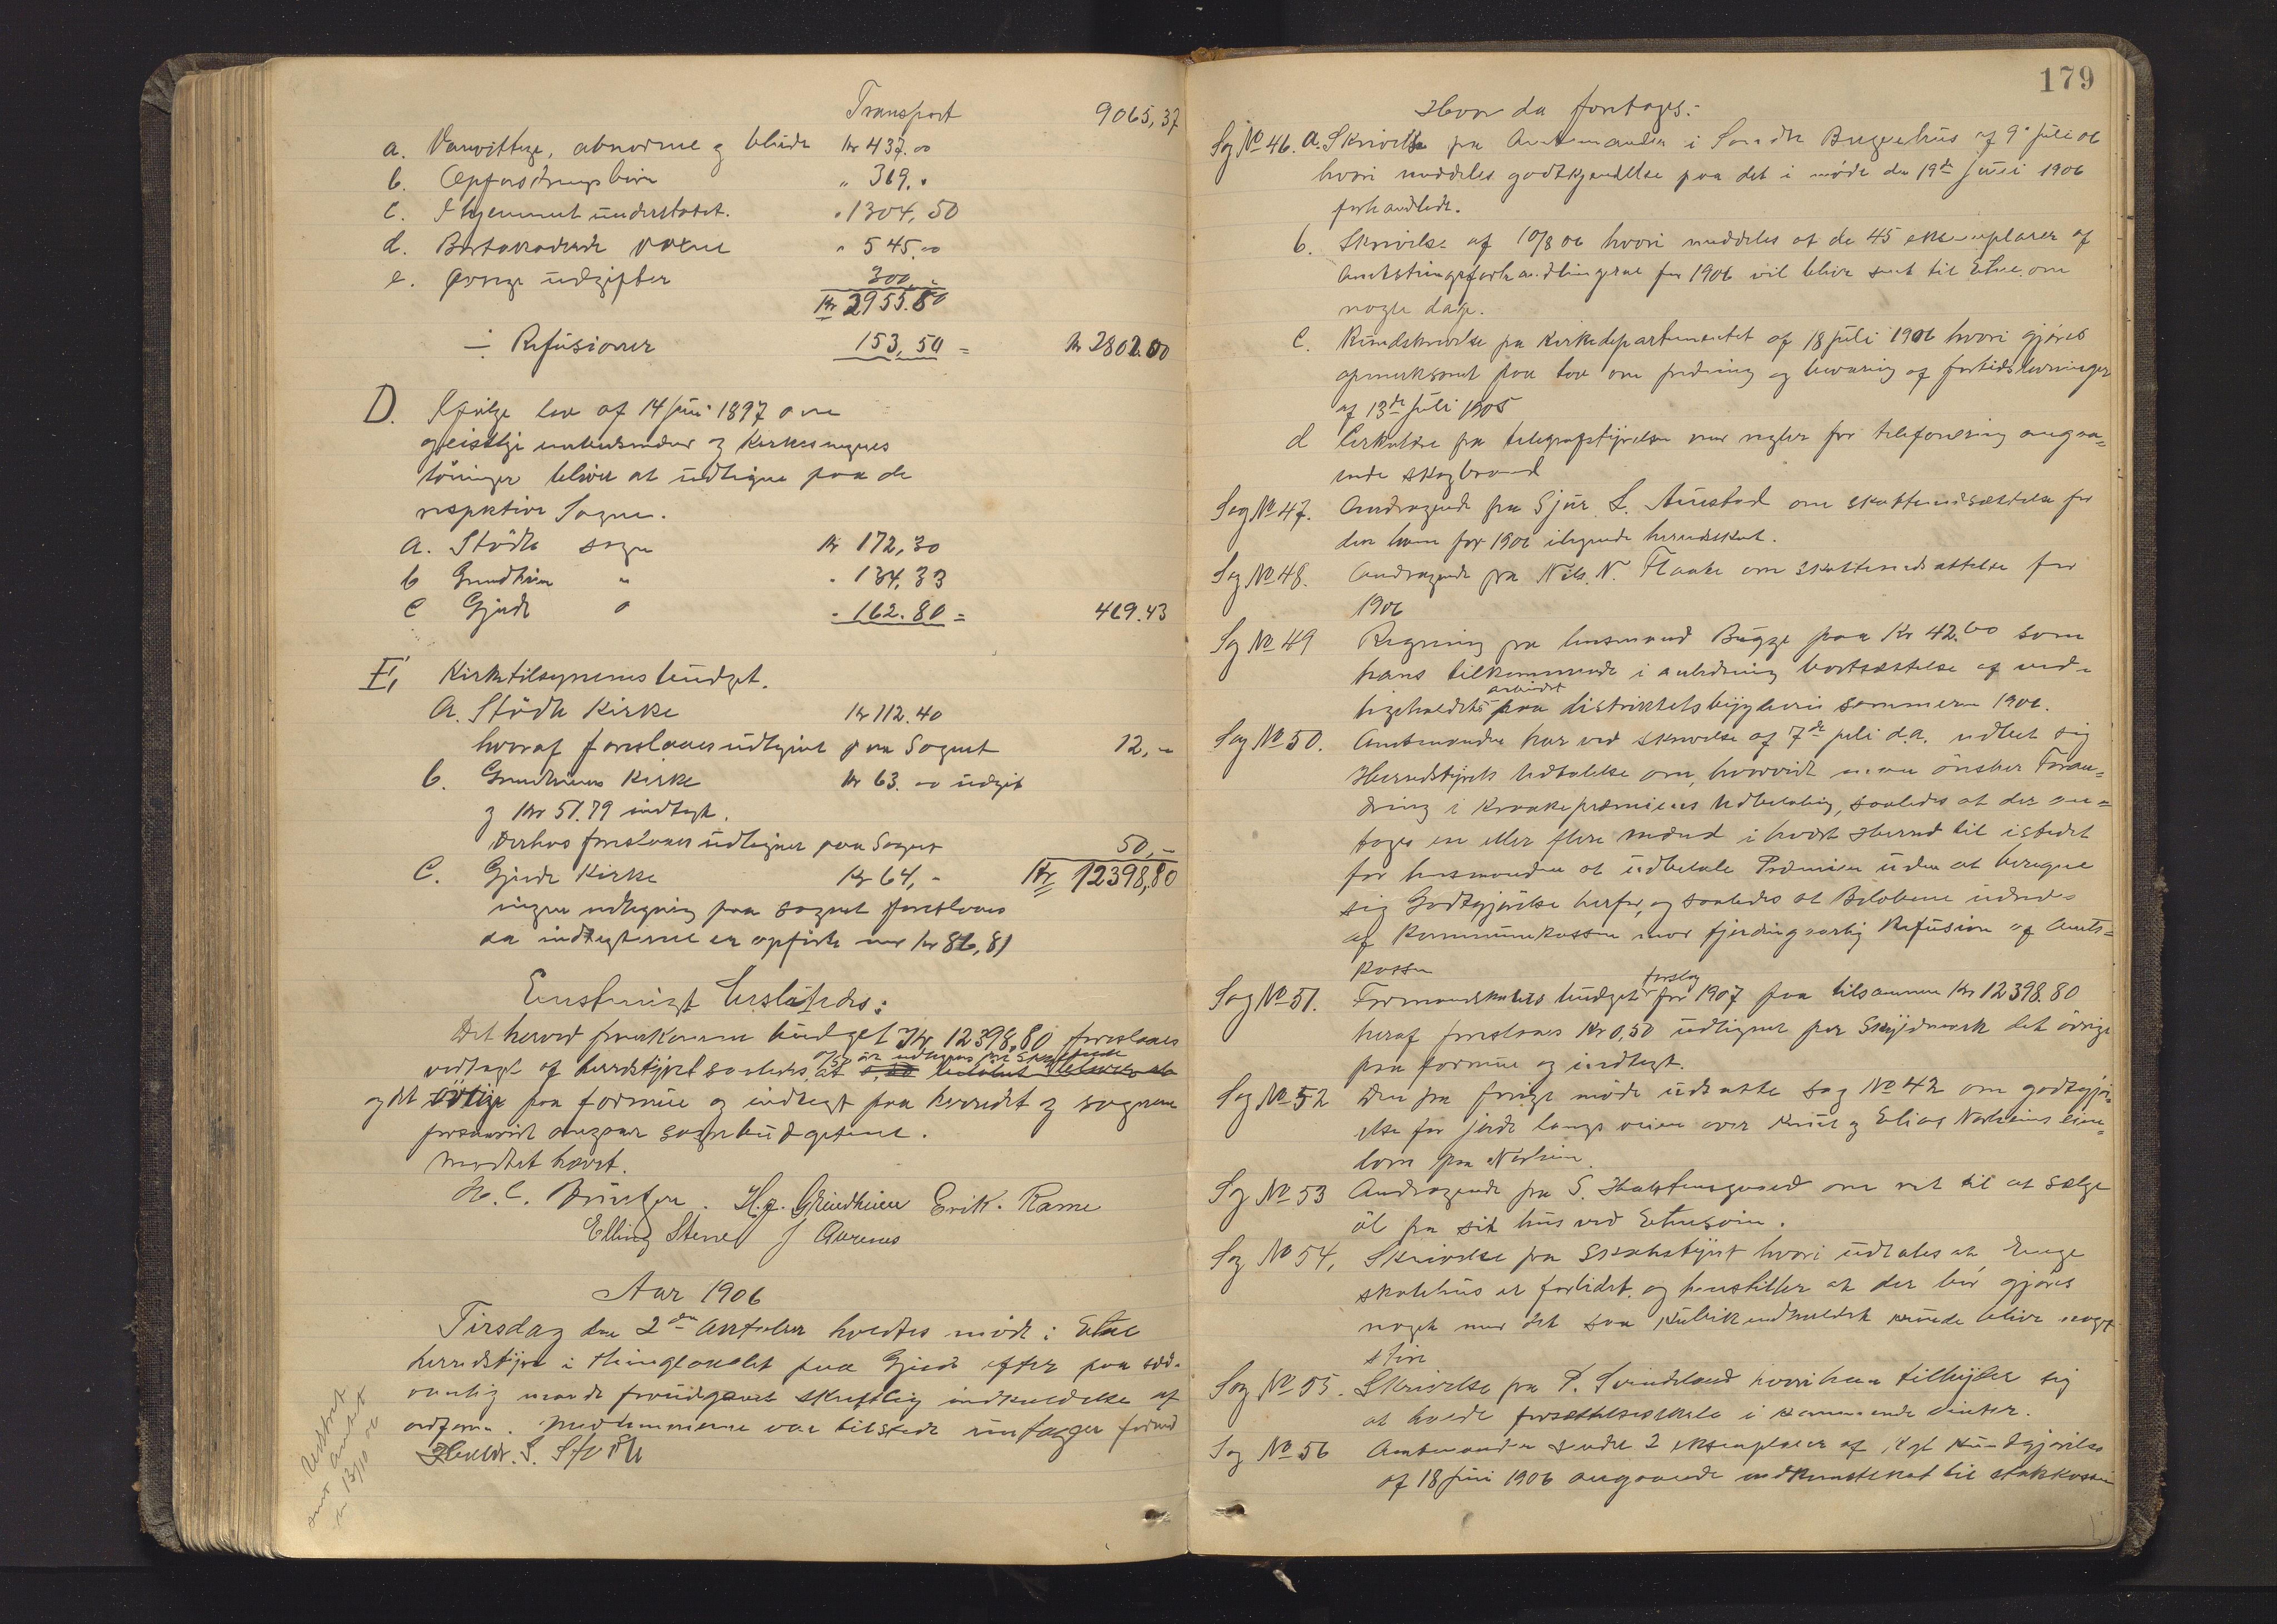 Transport 9065,37
a. Vanvittige, abnorme og blinde Kr 437.00
b. Opfostringsbörn " 369."
c. I hjemmet understötet. " 1304,50
d. Bortakorderede voxne " 545.00
e. Övrige udgifter 300.-
Kr 2955.50
÷ Refusioner 153,50 = Kr 2802.00
D. Ifölge lov af 14 Juni 1897 om
geistlige embedsmænd og Kirkesangeres
lönninger bliver at udligne paa de
respektive Sogne.
a. Stödle sogn Kr 172,30
b Grindheim " " 134,33
c Gjerde " " 162.80 = 469.43
E, Kirketilsynenes budget.
a. Stödle Kirke Kr 112.40
hvoraf foreslaaes udlignet paa Sognet 12,-
b. Grindheims Kirke Kr 63.00 udgift
og Kr 51.79 indtægt.
Derhos foreslaaes udlignet paa Sognet 50,-
c. Gjerde Kirke Kr 64,- Kr 12398,80
ingen udligning paa sognet foreslaaes
da indtægterne er opförte med kr 86,81
Enstemmigt besluttedes:
Det herved fremkomne budget Kr 12398,80 foreslaaes
vedtaget af herredstyret saaledes, at
og det övrige paa formue og indtægt paa herredet og sognene
forsaavidt angaar sognebudgetterne.
Mödet hævet.
H. J. Grindheim Erik. Rame
Elling Stene J Aarenes
Aar 1906
Tirsdag den 2den Oktober holdtes möde i Etne
herredstyre i thinglokalet paa Gjerde efter paa sæd-
vanlig maade forudgaaet skriftlig indkaldelse af
ordförer. Medlemmerne var tilstede undtagen formand
Haldor. S. Stödle
Udskrift
sendt amtet
den 13/10 06
179
Hvor da foretoges:-
Sag No 46. a. Skrivelse fra Amtmanden i Söndre Bergenhus af 9de juli 06
hvori meddeles godkjendelse paa det i möde den 19de juni 1906
forhandlede.
b. Skrivelse af 10/8 06 hvori meddeles at de 45 eksemplarer af
Amtstingsforhandlingerne for 1906 vil blive sent til Etne om
nogle dage.
c. Rundskrivelse fra Kirkedepartementet af 18 juli 1906 hvori gjöres
opmerksomt paa lov om fredning og bevaring af fortidslevninger
af 13de juli 1905
d Cirkulære fra telegrafstyrelsen med regler for telefonering angaa=
ende skogbrand
Sag No 47. Andragende fra Sjur L. Austad om skattenedsættelse for
den ham for 1906 ilignede herredskat.
Sag No 48. Andragende fra Nils. N. Flaate om skattenedsættelse for
1906
Sag No 49 Regning fra lensmand Bugge paa Kr 42.00 som
hans tilkommende i anledning bortsættelse af ved-
ligeholdets arbeidet paa distriktets bygdeveie sommeren 1906.
Sag No 50. Amtmanden har ved skrivelse af 7de juli d.a. udbedt sig
Herredstyrets Udtalelse om, hvorvidt man önsker Foran=
dring i Kraakepræmiens Udbetaling, saaledes at der an=
tages en eller flere mænd i hvert Herred til istedet
for lensmanden at udbetale Præmien uden at beregne
sig Godtgjörelse herfor, og saaledes at Belöbene udredes
af Kommunekassen mod fjerdingaarlig Refusion af Amts=
kassen
Sag No 51. Formandskabets budget forslag for 1907 paa tilsammen Kr 12398.80
heraf foreslaaes Kr 0,50 udlignet per Skyldmark det övrige
paa formue og indtægt.
Sag No 52 Den fra forrige möde udsatte sag No 42 om godtgjö=
relse for jorde langs veien over Knut og Elias Nærheims eien=
dom paa Nærheim.
Sag No 53 Andragende fra S. Halstensgaard om ret til at sælge
öl fra sit hus ved Etnesöen.
Sag No 54, Skrivelse fra Skolestyret hvori udtales at Enge
skolehus er forlidet og henstiller at der bör gjöres
noget med det saa kubikindholdet kunde blive noget
större
Sag No 55. Skrivelse fra P. Svindland hvori han tilbyder sig
at holde forsættelsesskole i kommende vinter.
Sag No 56 Amtmanden sendt 2 eksemplarer af Kgl Kundgjörelse
af 18 juni 1906 angaaende indkomstskat til statskassen